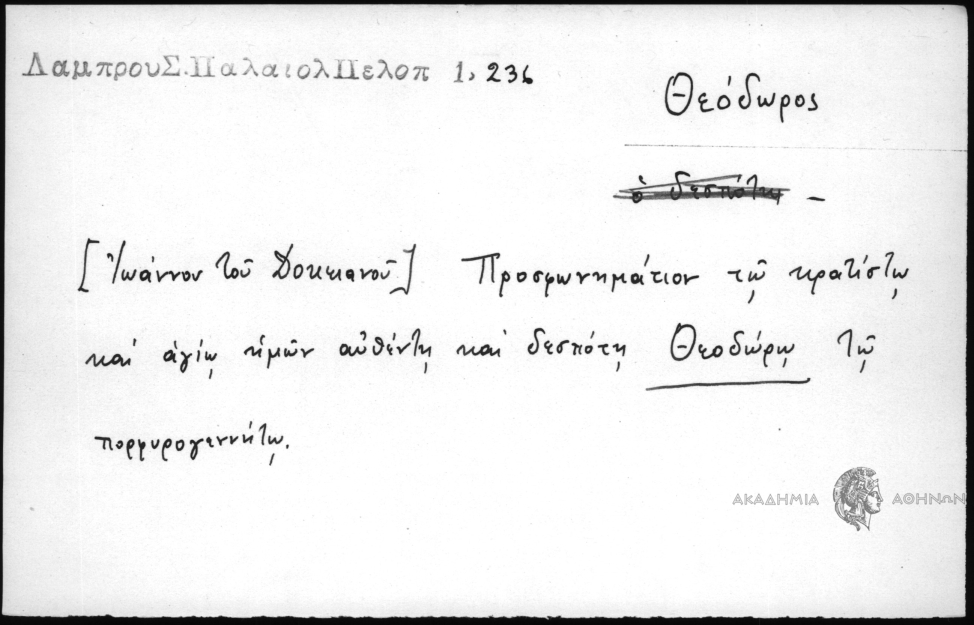 ΛαμπρουΣ.ΠαλαιολΠελοπ 1, 236
Θεόδωρος
ὁ δεσπότης –
[Ἰωάννου τοῦ Δοκειανοῦ] Προσφωνημάτιον τῷ κρατίστῳ
καὶ ἁγίῳ ἡμῶν αὐθέντῃ καὶ δεσπότῃ Θεοδώρῳ τῷ
πορφυρογεννήτῳ.
ΑΚΑΔΗΜΙΑ ΑΘΗΝΩΝ